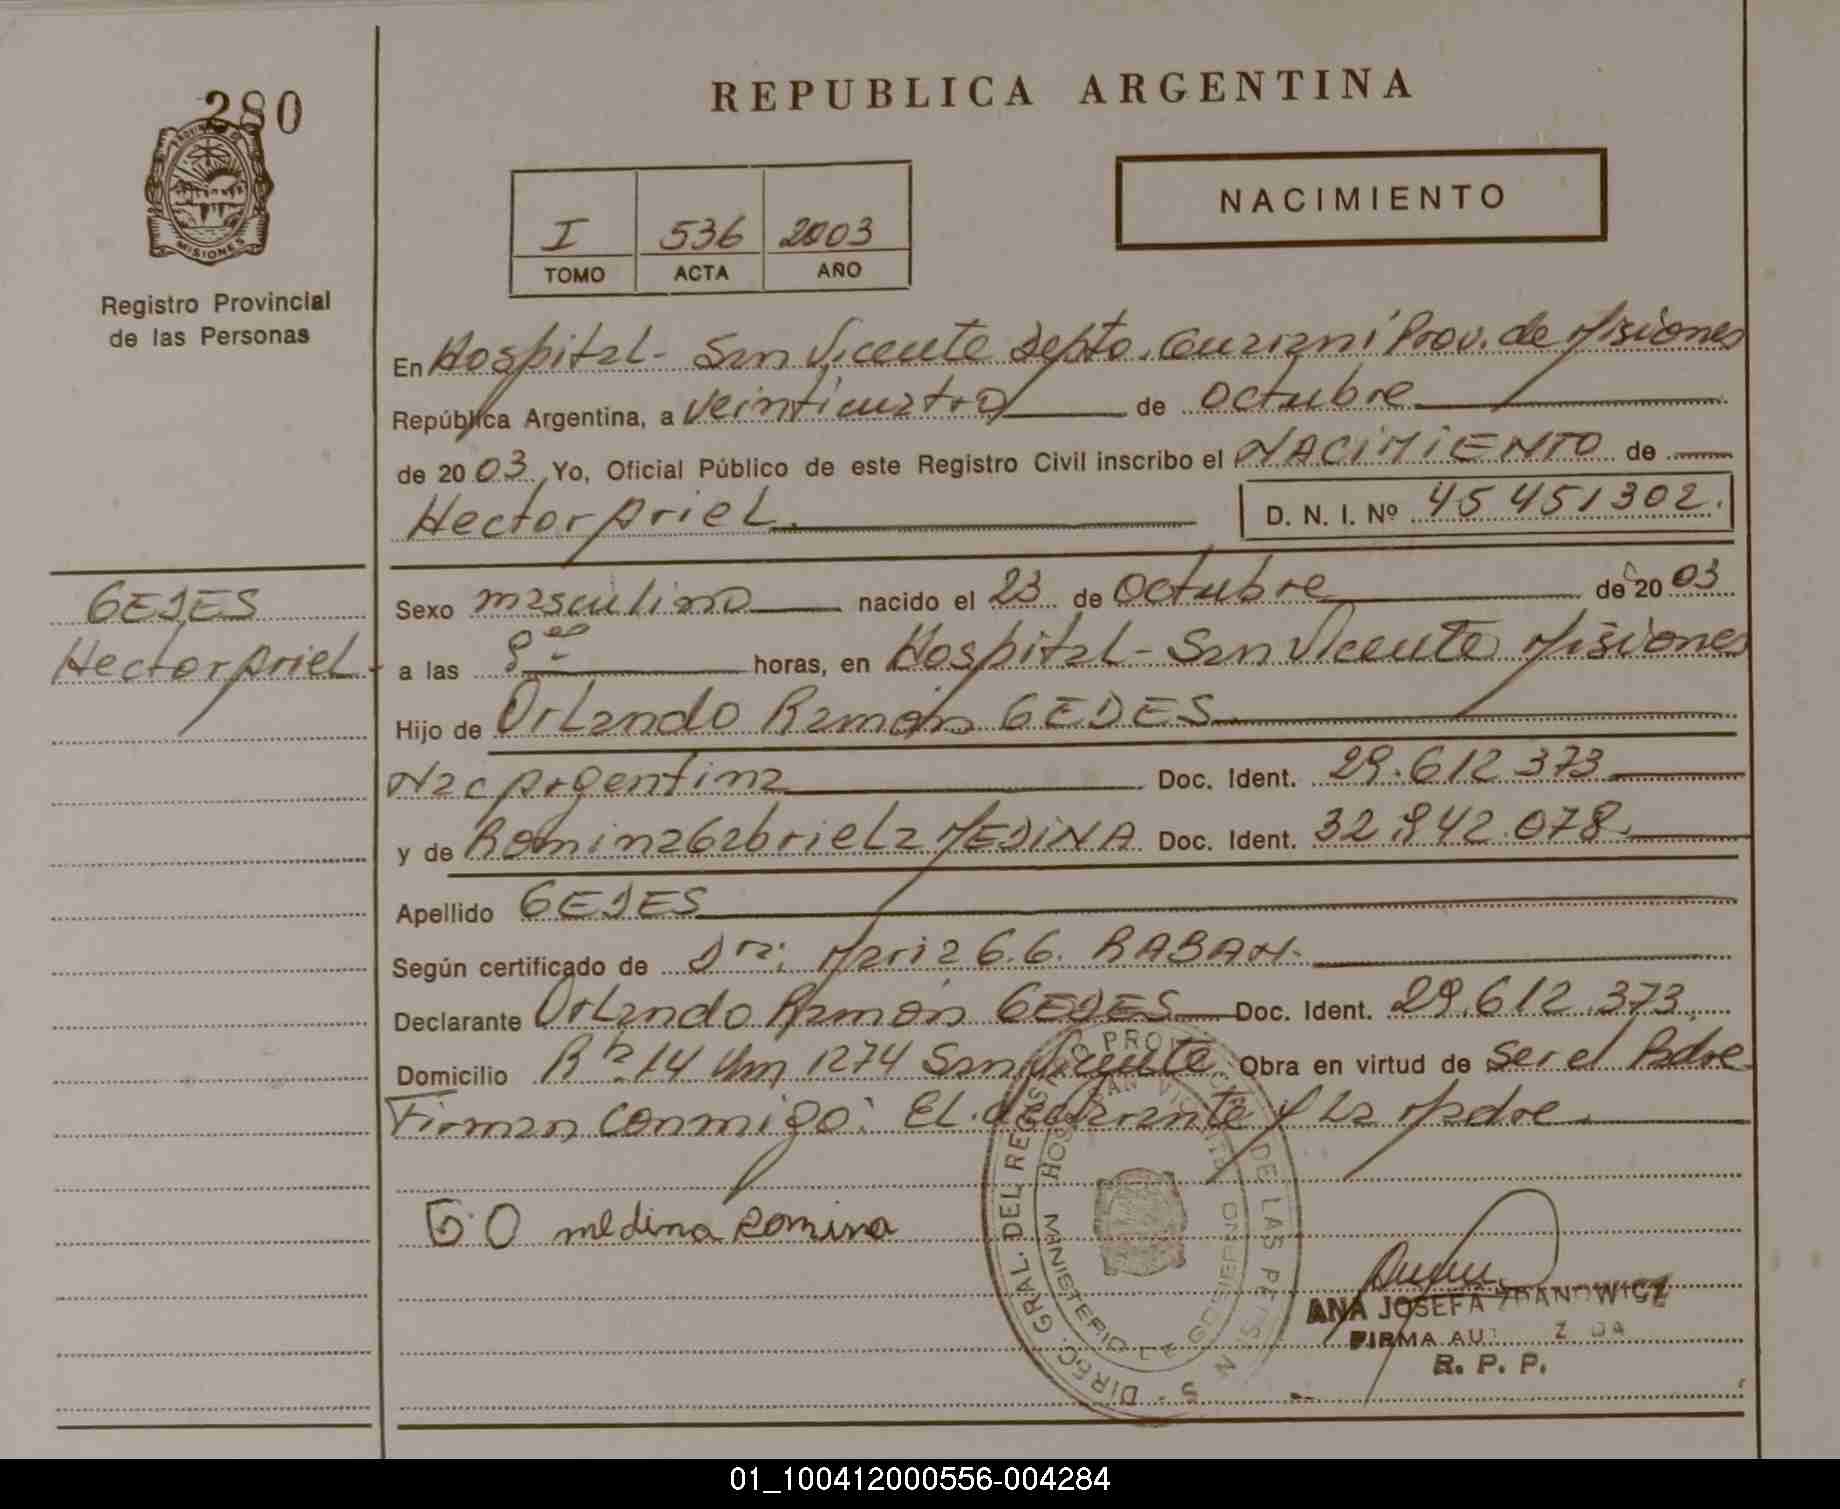 280
PROVINCIA DE
MISIONES
Registro Provincial
de las Personas
REPUBLICA ARGENTINA
I 536 2003
TOMO ACTA AÑO
NACIMIENTO
En Hospital - San Vicente Depto. Guaraní Prov. de Misiones
República Argentina, a veinticuatro de octubre
de 20 03 Yo, Oficial Público de este Registro Civil inscribo el NACIMIENTO de
Hector Ariel D. N. I. Nº 45 451302.
GEDES
Hector Ariel
Sexo masculino nacido el 23 de Octubre de 20 03
a las 8 horas, en Hospital - San Vicente Misiones
Hijo de Orlando Ramón GEDES
Nac Argentina Doc. Ident. 29.612.373
y de Romina Gabriela MEDINA Doc. Ident. 32.942.078.
Apellido GEDES
Según certificado de Dra: Maria G.G. RABAN.
Declarante Orlando Ramón GEDES Doc. Ident. 29.612.373
Domicilio Rta 14 Km 1274 San Vicente Obra en virtud de Ser el Padre
Firman conmigo: El declarante y La Madre.
G O medina Romina
DIREC. GRAL. DEL REGISTRO PROVINCIAL DE LAS PERSONAS
HOSP. SAN VICENTE
MINISTERIO DE GOBIERNO
ANA JOSEFA ZDANOWICZ
FIRMA AUTORIZADA
R. P. P.
01_100412000556-004284